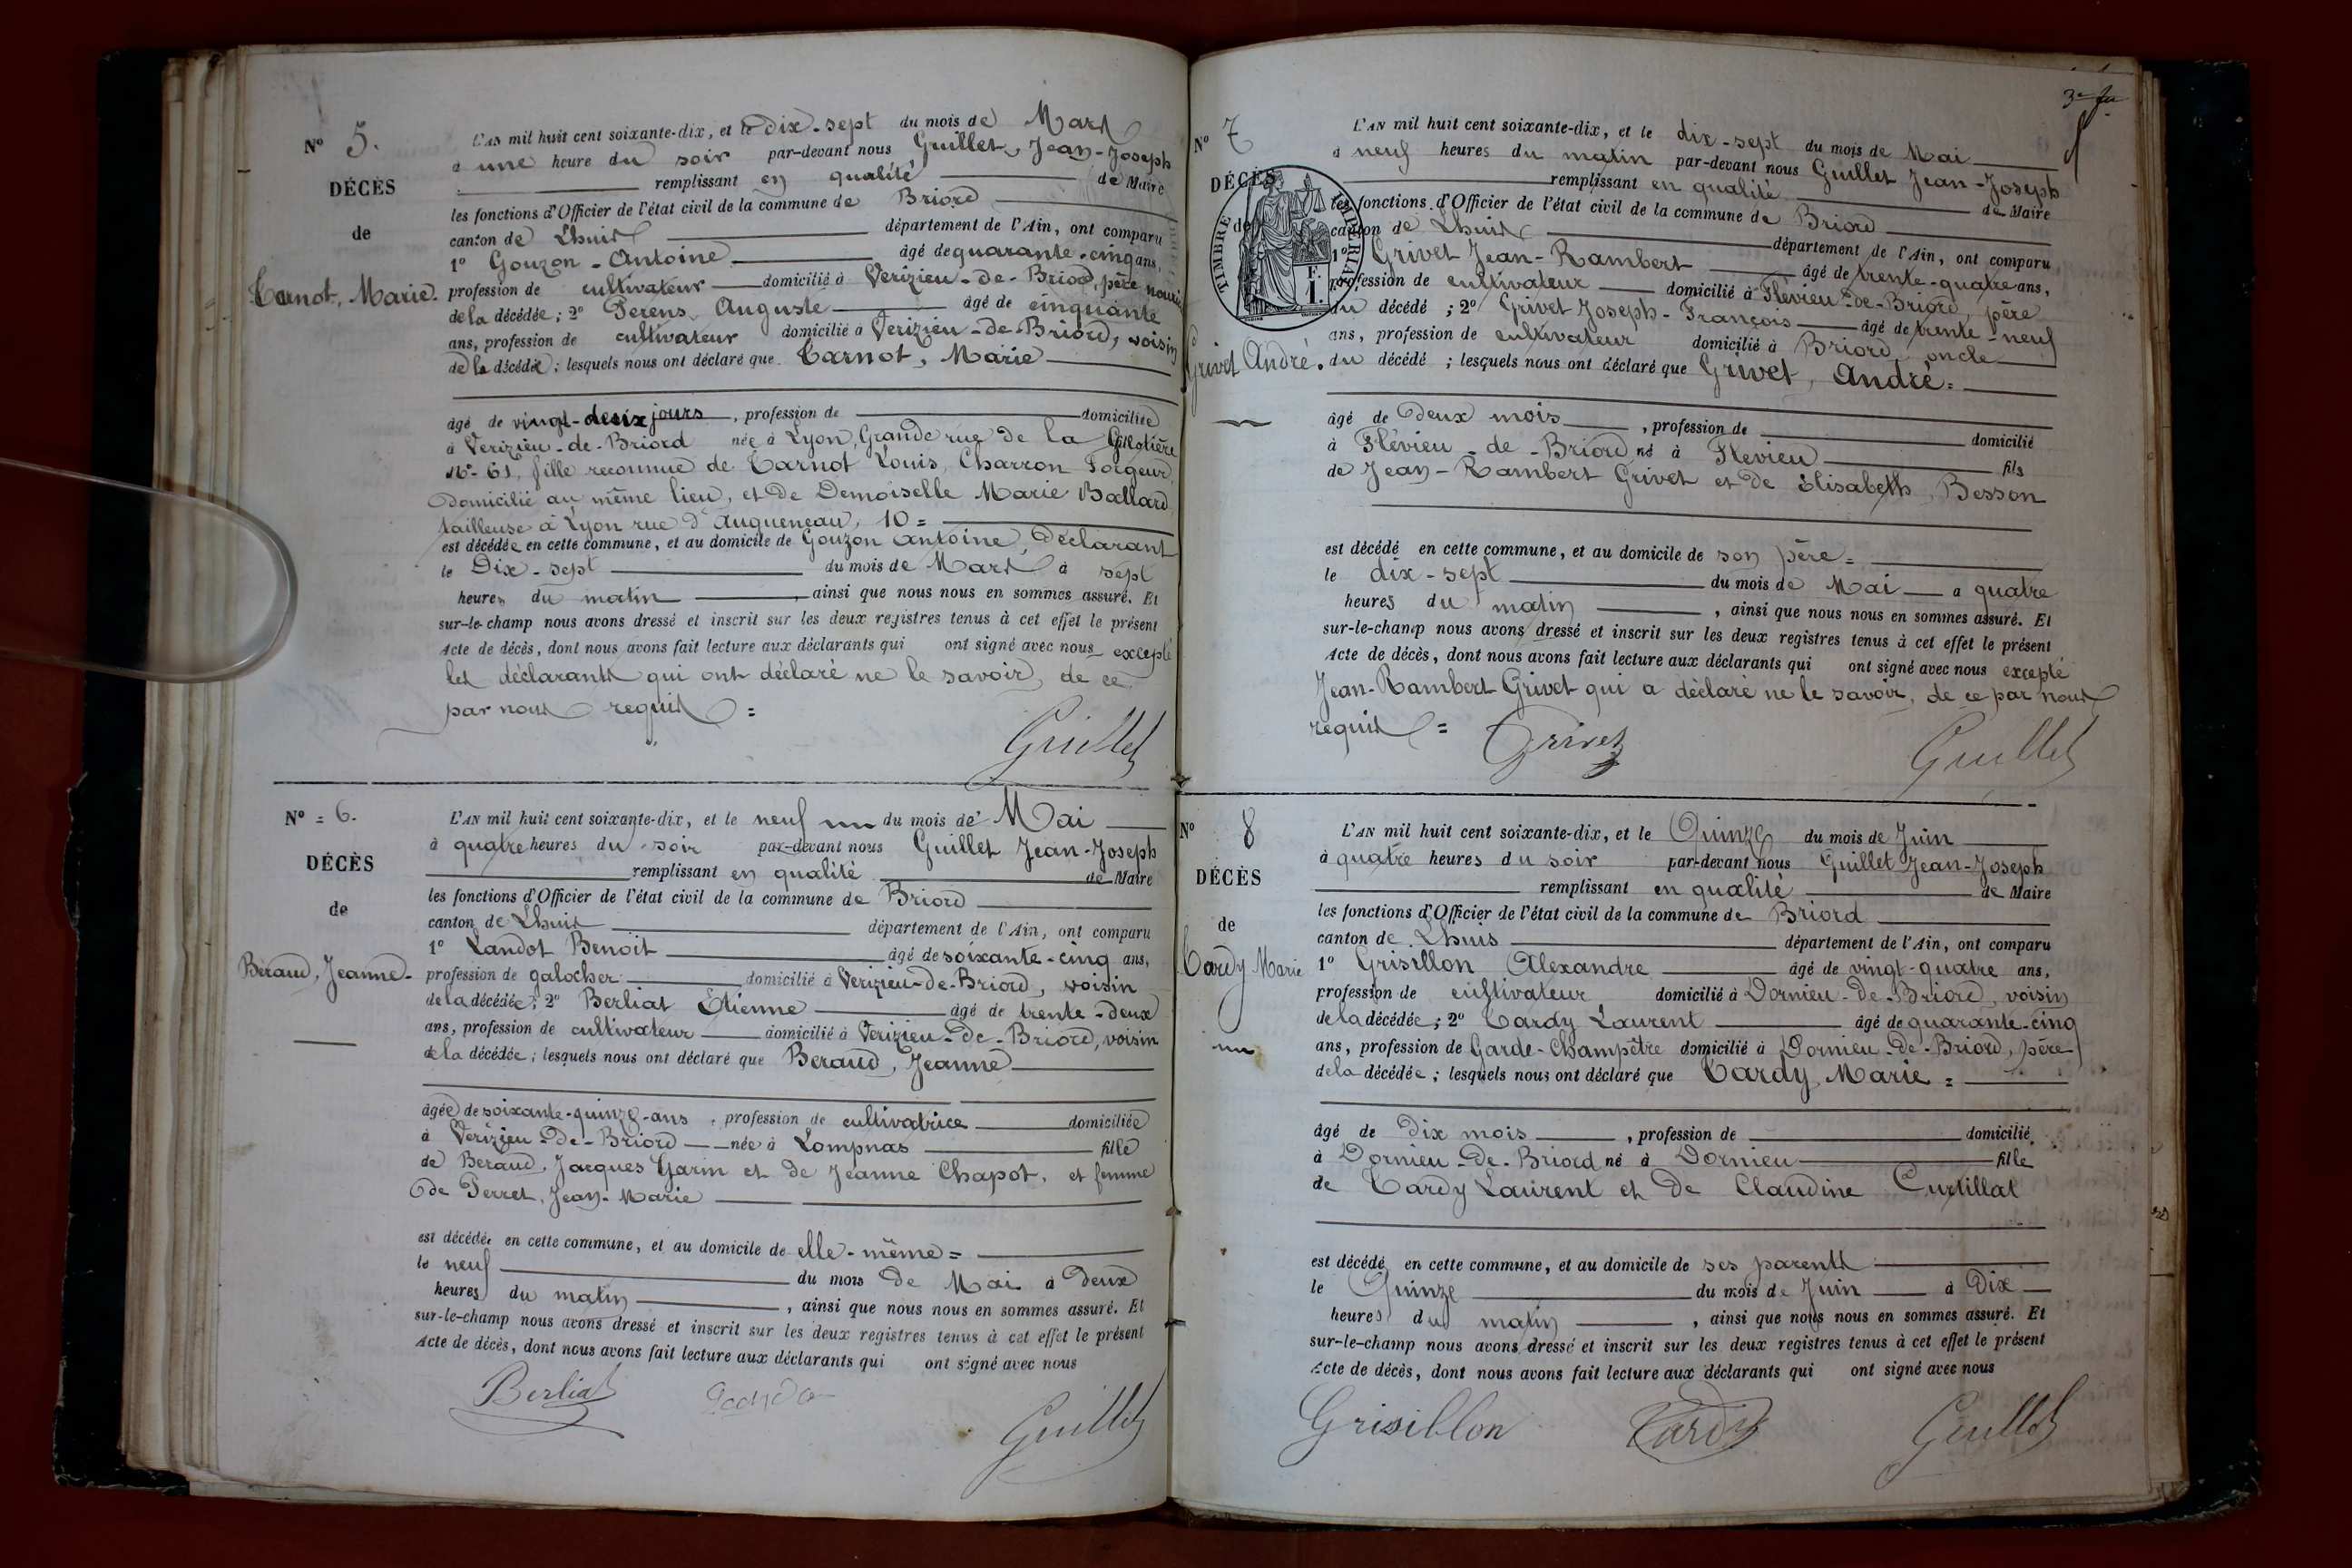 Nº 5.
DÉCÈS
de
Carnot, Marie.
L'AN mil huit cent soixante-dix, et le dix-sept du mois de Mars
à une heure du soir par-devant nous Guillet, Jean-Joseph
remplissant en qualité de Maire
les fonctions d'Officier de l'état civil de la commune de Briord
canton de Lhuis département de l'Ain, ont comparu
1º Gouzon Antoine âgé de quarante-cinq ans,
profession de cultivateur domicilié à Verizieu-de-Briord, père nourricier
de la décédée ; 2º Perens Auguste âgé de cinquante
ans, profession de cultivateur domicilié à Verizieu-de-Briord, voisin
de la décédée ; lesquels nous ont déclaré que Carnot, Marie
âgé de vingt-deux jours, profession de domiciliée
à Verizieu-de-Briord née à Lyon, Grande rue de la
Nº 61, fille reconnue de Carnot Louis, Charron Forgeur,
domicilié au même lieu, et de Demoiselle Marie Ballard
tailleuse à Lyon rue 10 =
est décédée en cette commune, et au domicile de Gouzon Antoine, Déclarant
le Dix-sept du mois de Mars à sept
heures du matin, ainsi que nous nous en sommes assuré. Et
sur-le-champ nous avons dressé et inscrit sur les deux registres tenus à cet effet le présent
Acte de décès, dont nous avons fait lecture aux déclarants qui ont signé avec nous excepté
les déclarants qui ont déclaré ne le savoir, de ce
par nous requis =
Guillet
Nº = 6.
DÉCÈS
de
Beraud, Jeanne.
L'AN mil huit cent soixante-dix, et le neuf du mois de Mai
à quatre heures du soir par-devant nous Guillet Jean-Joseph
remplissant en qualité de Maire
les fonctions d'Officier de l'état civil de la commune de Briord
canton de Lhuis département de l'Ain, ont comparu
1º Landot Benoit âgé de soixante-cinq ans,
profession de galocher domicilié à Verizieu-de-Briord, voisin
de la décédée ; 2º Berliat Etienne âgé de trente-deux
ans, profession de cultivateur domicilié à Verizieu-de-Briord, voisin
de la décédée ; lesquels nous ont déclaré que Beraud, Jeanne
âgée de soixante-quinze-ans, profession de cultivatrice domiciliée
à Verizieu-de-Briord née à Lompnas fille
de Beraud, Jacques Garin et de Jeanne Chapot, et femme
de Perret, Jean-Marie
est décédée en cette commune, et au domicile de elle-même =
le neuf du mois de Mai à deux
heures du matin, ainsi que nous nous en sommes assuré. Et
sur-le-champ nous avons dressé et inscrit sur les deux registres tenus à cet effet le présent
Acte de décès, dont nous avons fait lecture aux déclarants qui ont signé avec nous
Berliat
Guillet
3e
Nº 7
DÉCÈS
de
TIMBRE IMPÉRIAL
Grivet André.
L'AN mil huit cent soixante-dix, et le dix-sept du mois de Mai
à neuf heures du matin par-devant nous Guillet Jean-Joseph
remplissant en qualité de Maire
les fonctions d'Officier de l'état civil de la commune de Briord
canton de Lhuis département de l'Ain, ont comparu
1º Grivet Jean-Rambert âgé de trente-quatre ans,
profession de cultivateur domicilié à Flévieu-de-Briord, père
du décédé ; 2º Grivet Joseph-François âgé de trente-neuf
ans, profession de cultivateur domicilié à Briord, oncle
du décédé ; lesquels nous ont déclaré que Grivet, André =
âgé de Deux mois, profession de domicilié
à Flévieu-de-Briord né à Flevieu fils
de Jean-Rambert Grivet et de Elisabeth Besson
est décédé en cette commune, et au domicile de son père =
le dix-sept du mois de Mai à quatre
heures du matin, ainsi que nous nous en sommes assuré. Et
sur-le-champ nous avons dressé et inscrit sur les deux registres tenus à cet effet le présent
Acte de décès, dont nous avons fait lecture aux déclarants qui ont signé avec nous excepté
Jean-Rambert Grivet qui a déclaré ne le savoir, de ce par nous
requis =
Grivet
Guillet
Nº 8
DÉCÈS
de
Tardy Marie
L'AN mil huit cent soixante-dix, et le Quinze du mois de Juin
à quatre heures du soir par-devant nous Guillet Jean-Joseph
remplissant en qualité de Maire
les fonctions d'Officier de l'état civil de la commune de Briord
canton de Lhuis département de l'Ain, ont comparu
1º Grisillon Alexandre âgé de vingt-quatre ans,
profession de cultivateur domicilié à Dornieu-de-Briord, voisin
de la décédée ; 2º Tardy Laurent âgé de quarante-cinq
ans, profession de Garde-Champêtre domicilié à Dornieu-de-Briord, père
de la décédée ; lesquels nous ont déclaré que Tardy, Marie =
âgé de Dix mois, profession de domicilié
à Dornieu-de-Briord né à Dornieu fille
de Tardy Laurent et de Claudine Curtillat
est décédé en cette commune, et au domicile de ses parents
le Quinze du mois de Juin à Dix
heures du matin, ainsi que nous nous en sommes assuré. Et
sur-le-champ nous avons dressé et inscrit sur les deux registres tenus à cet effet le présent
Acte de décès, dont nous avons fait lecture aux déclarants qui ont signé avec nous
Grisillon
Tardy
Guillet